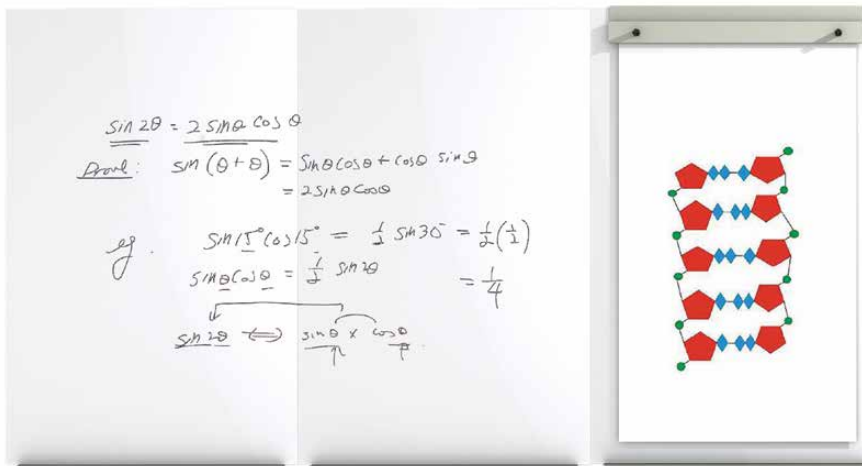 sin 2θ = 2 sinθ cos θ
Prove : sin (θ + θ) = sinθ cosθ + cosθ sinθ
= 2 sinθ cosθ
eg. sin 15° cos 15° = 1/2 sin 30° = 1/2 (1/2)
sinθ cosθ = 1/2 sin 2θ = 1/4
sin 2θ ⟺ sinθ x cosθ